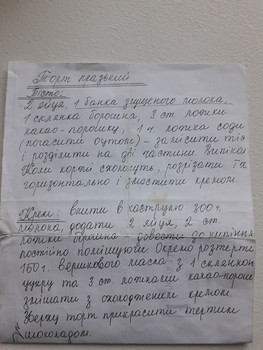 Торт празький
Тісто:
2 яйця, 1 банка згущеного молока,
1 склянка борошна, 3 ст. ложки
какао-порошку, 1 ч. ложка соди
(погасити оцтом) - замісити тісто
і розділити на дві частини. Випікати
Коли коржі охолонуть, розрізати їх
горизонтально і змастити кремом.
Крем: влити в каструлю 300 г
молока, додати 2 яйця, 2 ст.
ложки борошна - довести до кипіння
постійно помішуючи. Окремо розтерти
150 г. вершкового масла з 1 склянкою
цукру та 3 ст. ложками какао-порошку
змішати з охолодженим кремом.
Зверху торт прикрасити тертим
шоколадом.